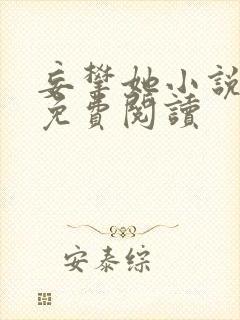 妄攀她小說
免費閱讀
安泰綜